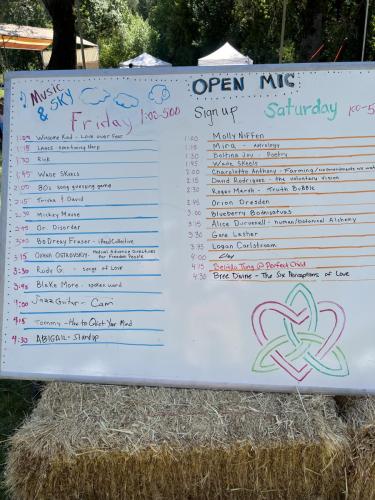 Music & Sky
Friday 1:00-5:00
Winsome Kid - Love over Fear
1:15 Laars Mouthway Harp
1:30 Rick
1:45 Wade Skeels
2:00 80s song guessing game
2:15 Trisha & David
2:30 Mickey Mouse
2:45 Dr. Disorder
3:00 BoDrexy Fraser
3:15 Medical Advance Directives for Freedom People
3:30 Rudy G. - songs of Love
3:45 Blake More - spoken word
4:00 Jazz Guitar - Cam
4:15 Tommy - How to Quiet Your Mind
4:30 ABIGAIL - Standup
OPEN MIC
Sign up Saturday
1:00 Molly Niffen
Mira - Astrology
1:30 Doltina Joy - Poetry
1:45 Wade Skeels
2:00 Charolette Anthony - Farming/
2:15 David Rodriguez - the voluntary vision
2:30 Roger Marsh - Truth Bubble
2:45 Orion Dresden
3:00 Blueberry Bodhisatvas
3:15 Alice Durvenell - human/botanical Alchemy
3:30 Gene Lasher
3:45 Logan Carlstream
4:00 Clay
4:15 Belinda Tung @ Perfect Child
4:30 Bree Divine - The Six Perceptions of Love